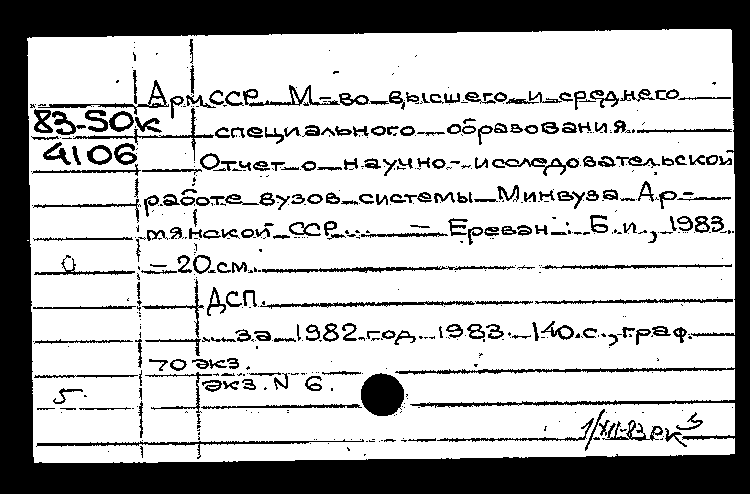 АрмССР. М-во высшего и среднего
83-5ОК
специального образования
4106
Отчет о научно-исследовательской
работе вузов системы Минвуза Ар-
мянской ССР... — Ереван : Б.и., 1983.
0 — 20 см.
ДСП.
... за 1982 год. 1983. 140 с., граф.
70 экз.
экз. N 6.
5.
1/XII-83 РК